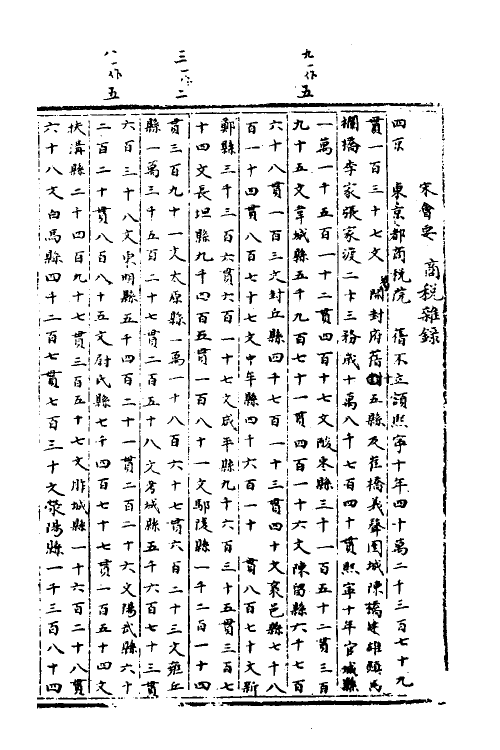 九一作五
三一作二
八一作五
宋會要 商税雜錄
四京 東京都商税院 舊不立額熙寧十年四十萬二千三百七十九
貫一百三十七文 開封府舊五縣及崔橋義聲圉城陳橋建雄顯馬
欄橋李家張家渡二十三務歲十萬八千七百四十貫熙寧十年官城縣
一萬一千五百一十二貫四百十七文酸棗縣三千一百五十二貫三百
九十五文韋城縣五千九百七十一貫四百一十六文陳留縣六千七百
六十八貫一百三文封丘縣四千七百一十三貫四十文襄邑縣七千八
百一十四貫八百七十七文中牟縣四千六百一十 貫八百七十文新
鄭縣三千三百六貫六百一十七文咸平縣九千六百三十五貫三百七
十四文長垣縣九千四百五貫一百八十一文鄢陵縣一千二百一十四
貫三百九十一文太原縣一萬一千八百六十七貫六百二十三文雍丘
縣一萬三千五百二十七貫二百五十八文考城縣五千六百七十三貫
六百三十八文東明縣五千四百二十一貫二百二十六文陽武縣六千
二百二十貫八百八十五文尉氏縣七千四百七十七貫一百五十四文
扶溝縣二千四百九十七貫三百五十七文胙城縣一千六百二十八貫
六十八文白馬縣四千二百七貫七百三十文滎陽縣一千三百八十四